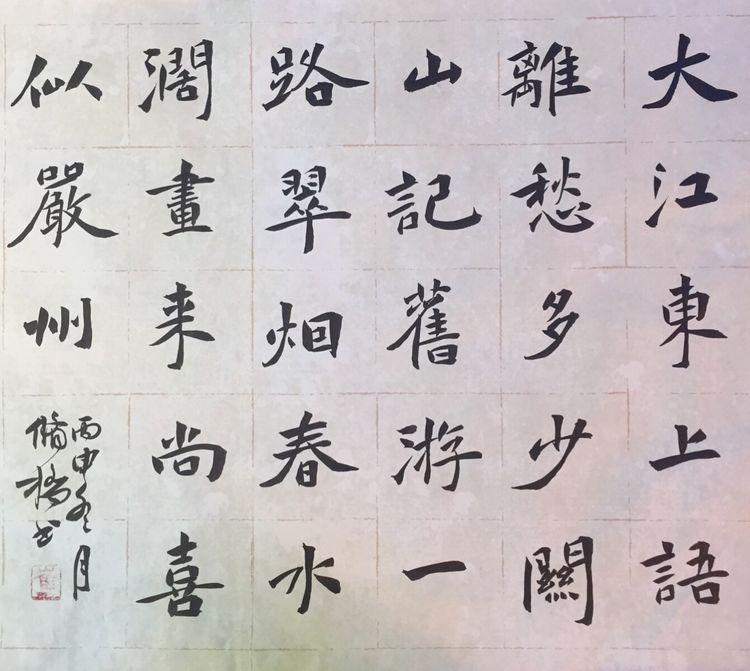 大江東上語
離愁多少關
山記舊游一
路翠烟春水
濶畫来尚喜
似嚴州
丙申冬月
脩书